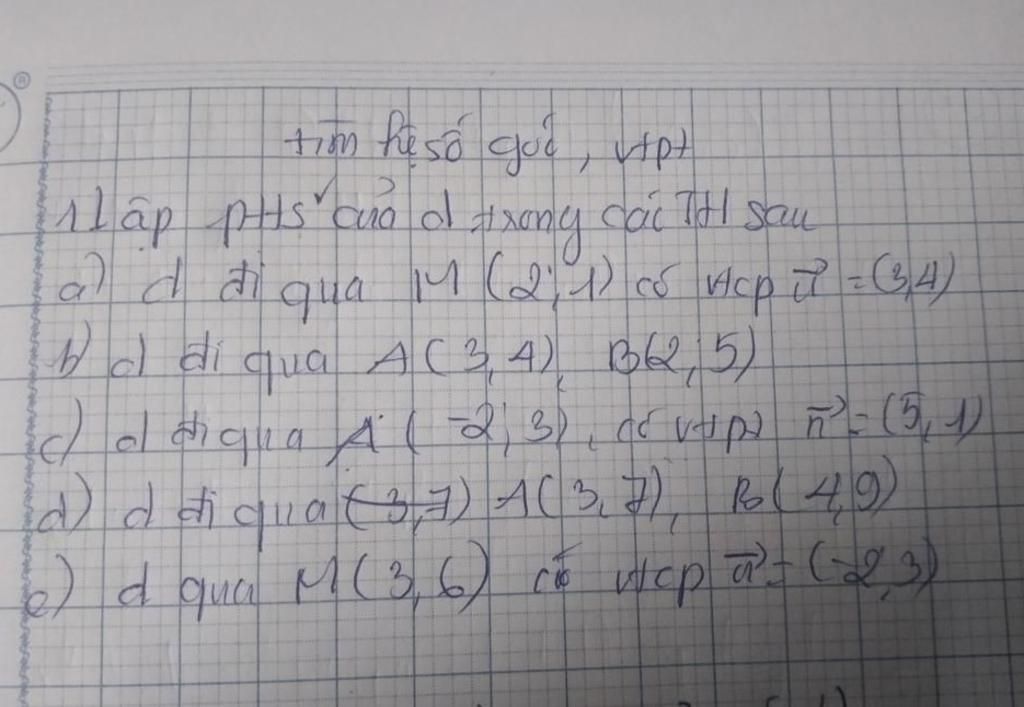 tìm hệ số góc, vtpt
1 Lập ptts của d trong các TH sau
a) d đi qua M (2; 1) có vtcp u⃗ = (3,4)
b) d đi qua A (3, 4), B(2, 5)
c) d đi qua A (-2; 3), có vtpt n⃗ = (5, 1)
d) d đi qua (3,7) A(3, 7), B(4,9)
e) d qua M (3, 6) có vtcp u⃗ = (-2,3)